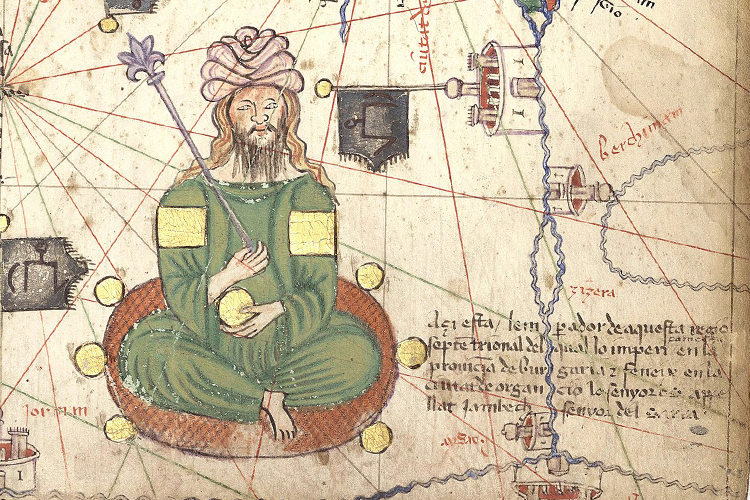 ciutat de
berchimam
zizera
Açi esta / lem pador de aquesta regio
septetrional del qual lo imperi comença en la
prouinçia de bur garia z feneix en la
ciutat de organ cio lo senyor es appe
llat Jambech senyor del sarra
jorman